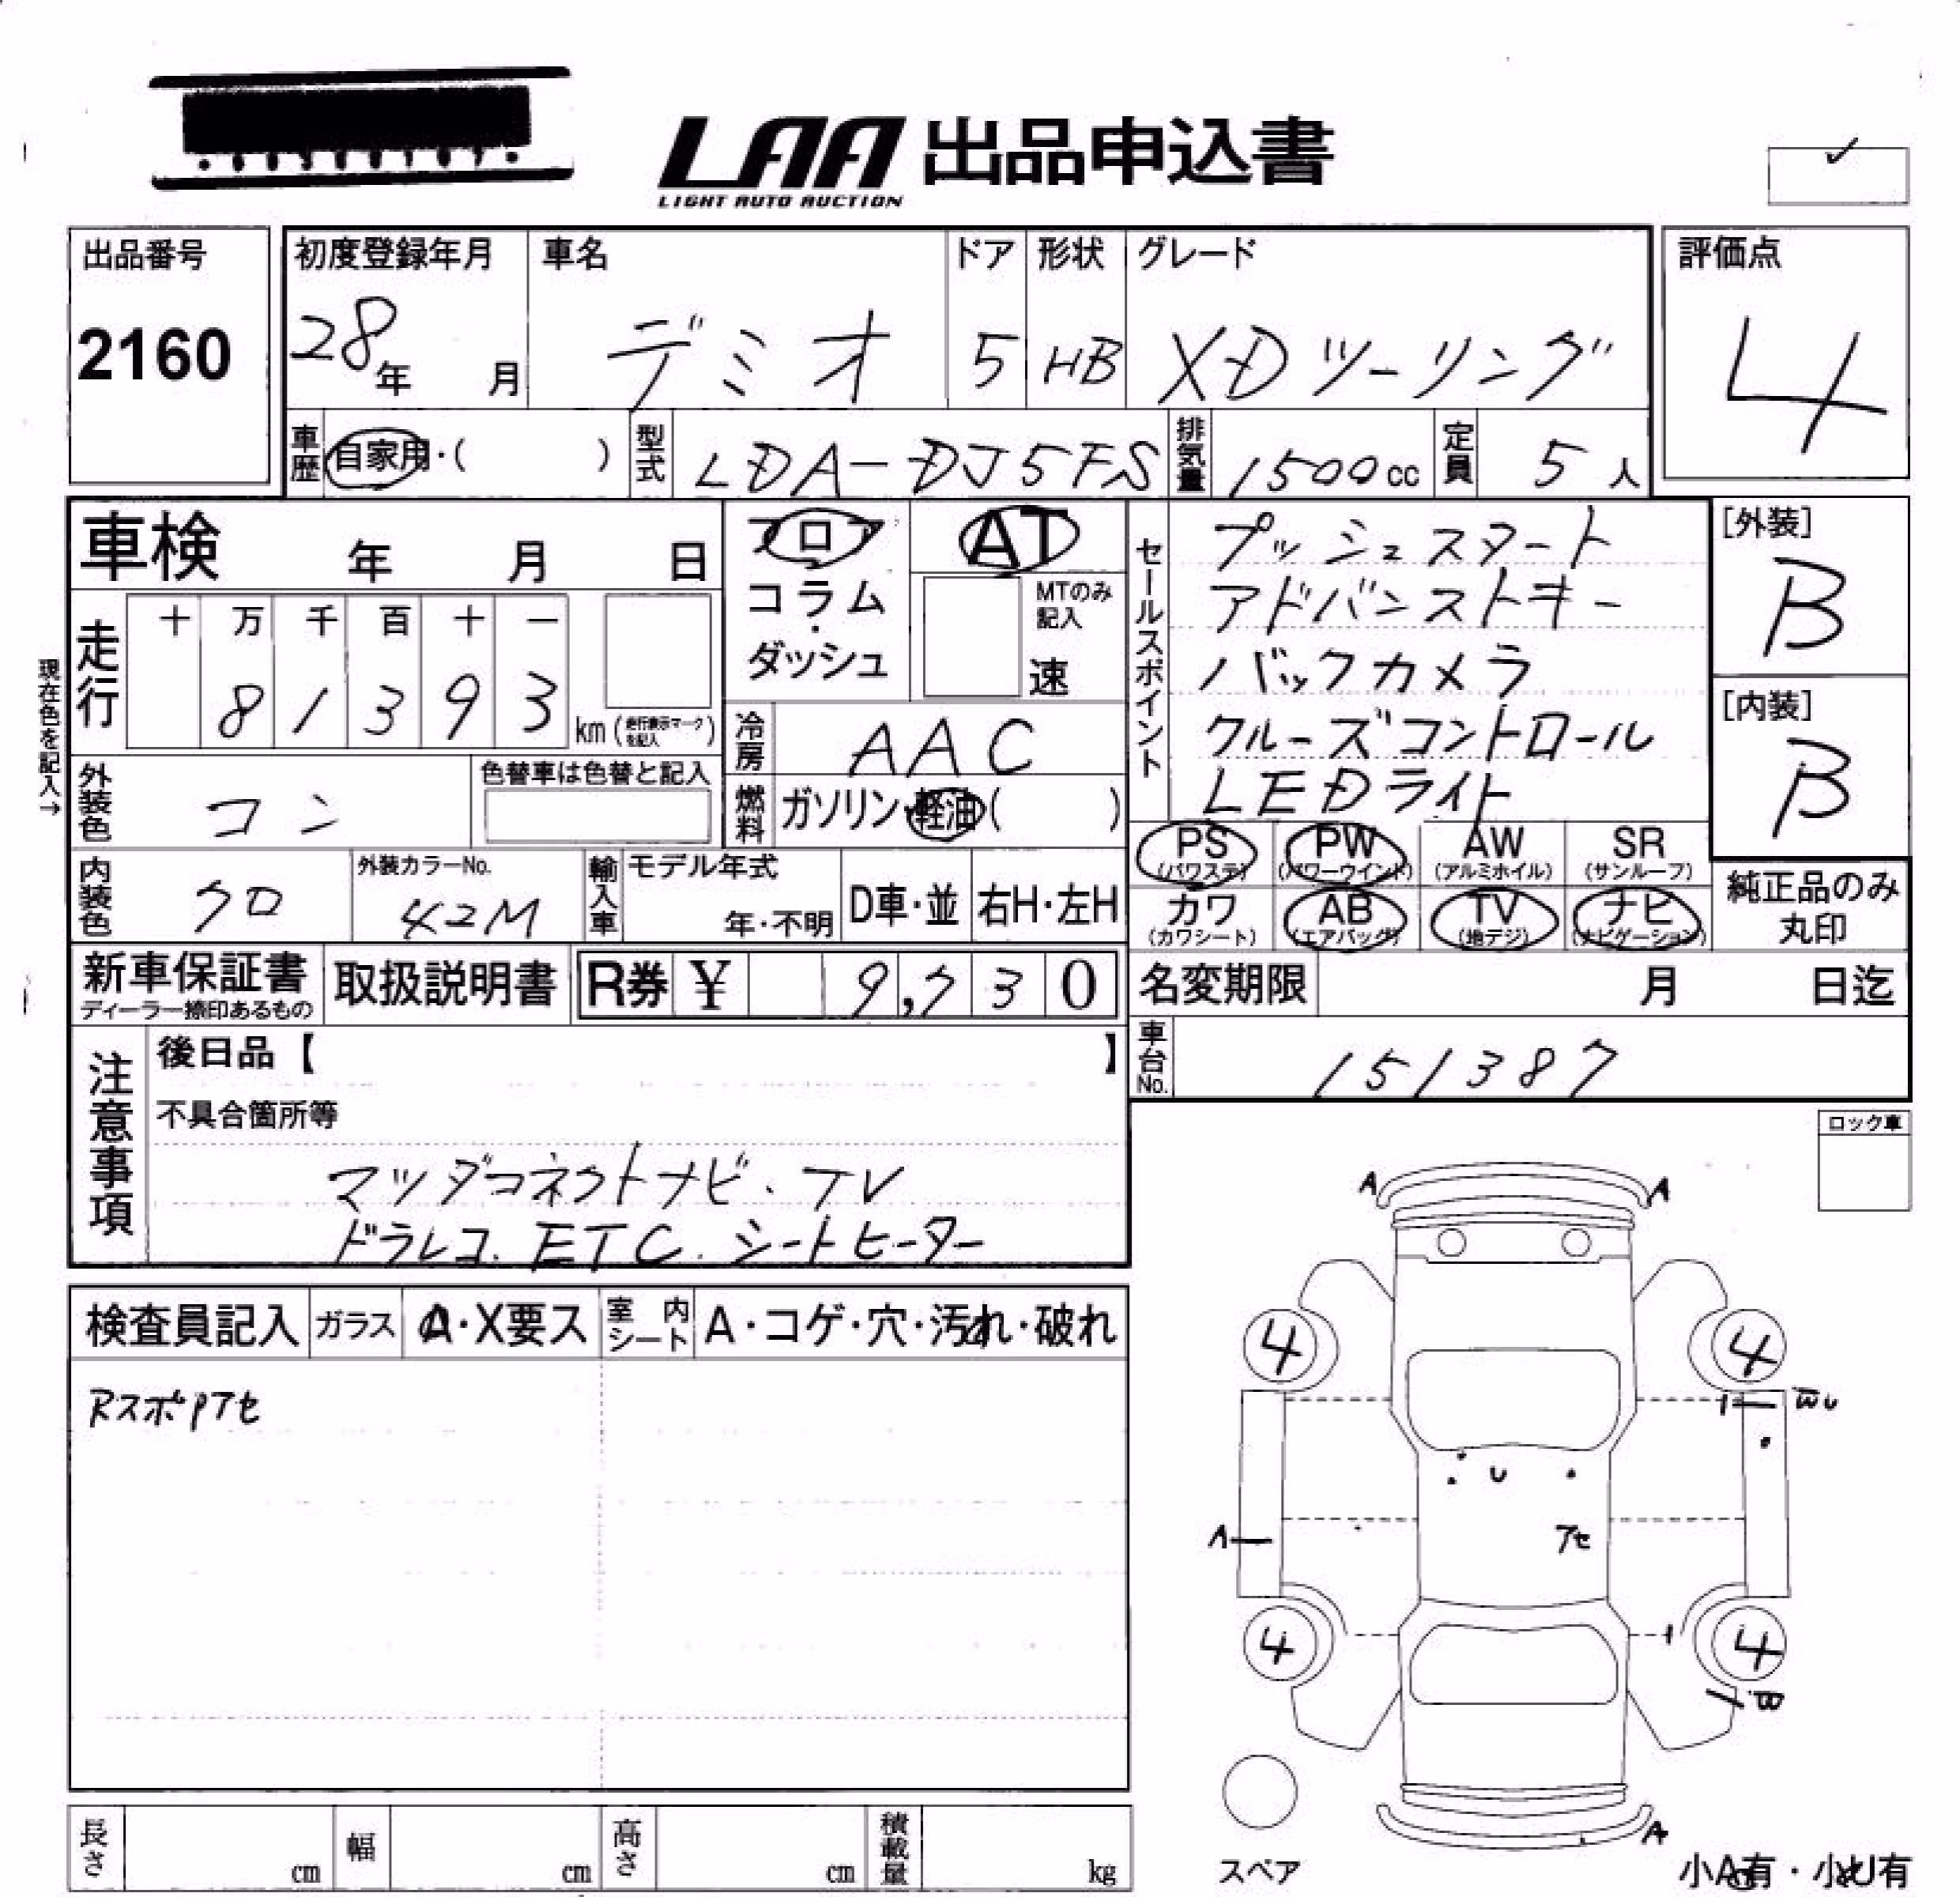 LAA 出品申込書
LIGHT AUTO AUCTION
出品番号
2160
初度登録年月
28年 月
車名
デミオ
ドア
5
形状
HB
グレード
XDツーリング
評価点
4
車歴 自家用・( )
型式 LDA-DJ5FS
排気量 1500cc
定員 5人
車検 年 月 日
フロア
コラム・
ダッシュ
AT
MTのみ
記入
速
セールスポイント
プッシュスタート
アドバンストキー
バックカメラ
クルーズコントロール
LEDライト
[外装]
B
[内装]
B
現在色を記入→
走行
十 万 千 百 十 一
8 1 3 9 3 km (走行表示マークを記入)
冷房 AAC
燃料 ガソリン・軽油( )
外装色 コン
色替車は色替と記入
PS (パワステ)
PW (パワーウインド)
AW (アルミホイル)
SR (サンルーフ)
カワ (カワシート)
AB (エアバッグ)
TV (地デジ)
ナビ (ナビゲーション)
純正品のみ
丸印
内装色 クロ
外装カラーNo.
42M
輸入車
モデル年式
年・不明
D車・並
右H・左H
新車保証書
ディーラー捺印あるもの
取扱説明書
R券 ¥ 9,730
名変期限 月 日迄
車台No. 151387
注意事項
後日品【 】
不具合箇所等
マツダコネクトナビ・TV
ドラレコ. ETC. シートヒーター
ロック車
検査員記入
ガラス A・X要ス
室内シート A・コゲ・穴・汚れ・破れ
RスポPアセ
A A
4 4
U
A アセ
4 4
B
A
スペア
小A有・小U有
長さ cm
幅 cm
高さ cm
積載量 kg